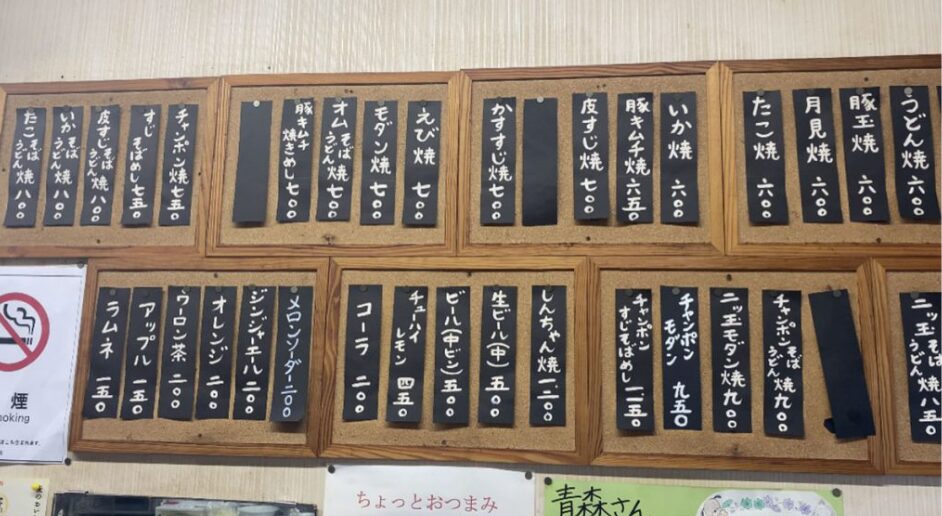 うどん焼 六〇〇
豚玉焼 六〇〇
月見焼 六〇〇
たこ焼 六〇〇
いか焼 六〇〇
豚キムチ焼 六五〇
皮すじ焼 七〇〇
かすすじ焼 七〇〇
えび焼 七〇〇
モダン焼 七〇〇
オムそばうどん焼 七〇〇
豚キムチ焼きめし 七〇〇
チャンポン焼 七五〇
すじそばめし 七五〇
皮すじそばうどん焼 八〇〇
いかそばうどん焼 八〇〇
たこそばうどん焼 八〇〇
二ッ玉そばうどん焼 八五〇
チャンポンそばうどん焼 九〇〇
二ッ玉モダン焼 九〇〇
チャンポンモダン 九五〇
チャンポンすじそばめし 一一五〇
しんちゃん焼 一二〇〇
生ビール(中) 五〇〇
ビール(中ビン) 五〇〇
チューハイレモン 四五〇
コーラ 二〇〇
メロンソーダー 二〇〇
ジンジャエール 二〇〇
オレンジ 二〇〇
ウーロン茶 二〇〇
アップル 一五〇
ラムネ 一五〇
煙
oking
ちょっとおつまみ
青森さん